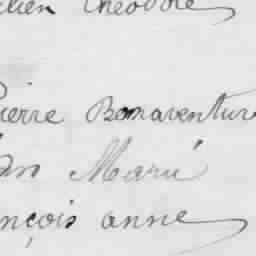 lien Théodore
Pierre Bonaventur
Marie
nçois anne